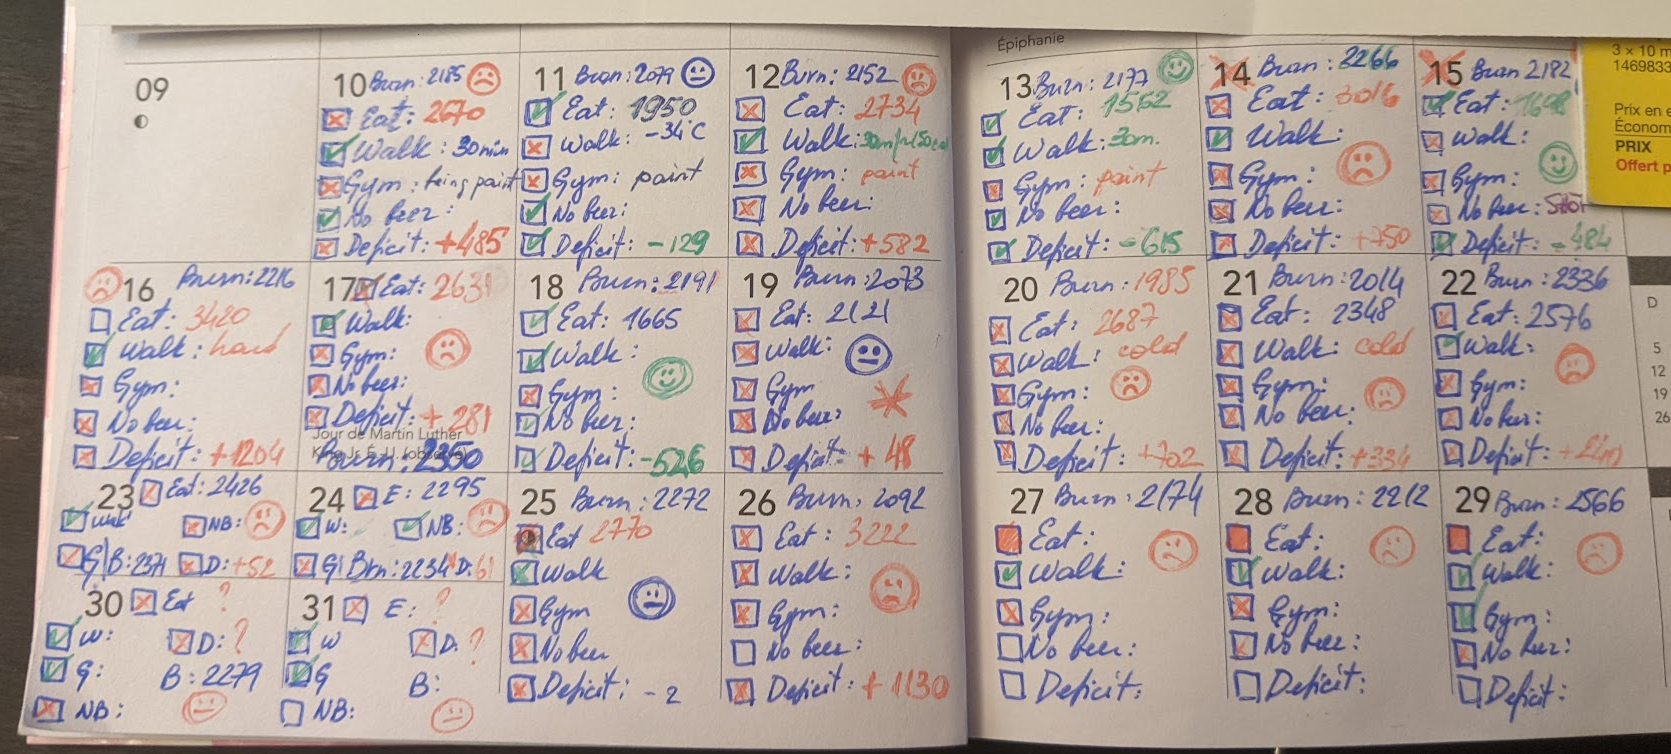 Épiphanie
3 × 10 m
1469833
Prix en e
Économ
PRIX
Offert p
09
10 Burn: 2185
Eat: 2670
Walk: 30 min
Gym: being paint
No beer:
Deficit: +485
11 Burn: 2079
Eat: 1950
Walk: -34°C
Gym: paint
No beer:
Deficit: -129
12 Burn: 2152
Eat: 2734
Walk:
Gym: paint
No beer:
Deficit: +582
13 Burn: 2177
Eat: 1562
Walk: 30m.
Gym: paint
No beer:
Deficit: -615
14 Burn: 2266
Eat: 3016
Walk:
Gym:
No beer:
Deficit: +750
15 Burn 2182
Eat: 1698
Walk:
Gym:
No beer:
Deficit: -484
16 Burn: 2216
Eat: 3420
Walk: hard
Gym:
No beer:
Deficit: +1204
17 Eat: 2631
Walk:
Gym:
No beer:
Deficit: +281
Jour de Martin Luther
King Jr. É.-U. (observé)
Burn: 2350
18 Burn: 2191
Eat: 1665
Walk:
Gym:
No beer:
Deficit: -526
19 Burn: 2073
Eat: 2121
Walk:
Gym
No beer:
Deficit: +48
20 Burn: 1985
Eat: 2687
Walk: cold
Gym:
No beer:
Deficit: +702
21 Burn: 2014
Eat: 2348
Walk: cold
Gym:
No beer:
Deficit: +334
22 Burn: 2336
Eat: 2576
Walk:
Gym:
No beer:
Deficit:
D
5
12
19
26
23 Eat: 2426
Walk NB:
G B: 2374 D: +52
24 E: 2295
W: NB:
G Brn: 2234 D: 61
25 Burn: 2272
Eat 2770
Walk
Gym
No beer
Deficit: -2
26 Burn: 2092
Eat: 3222
Walk:
Gym:
No beer:
Deficit: +1130
27 Burn: 2174
Eat:
Walk:
Gym:
No beer:
Deficit:
28 Burn: 2212
Eat:
Walk:
Gym:
No beer:
Deficit:
29 Burn: 2566
Eat:
Walk:
Gym:
No beer:
Deficit:
30 Eat ?
W: D: ?
G: B: 2279
NB:
31 E: ?
W D: ?
G B:
NB: